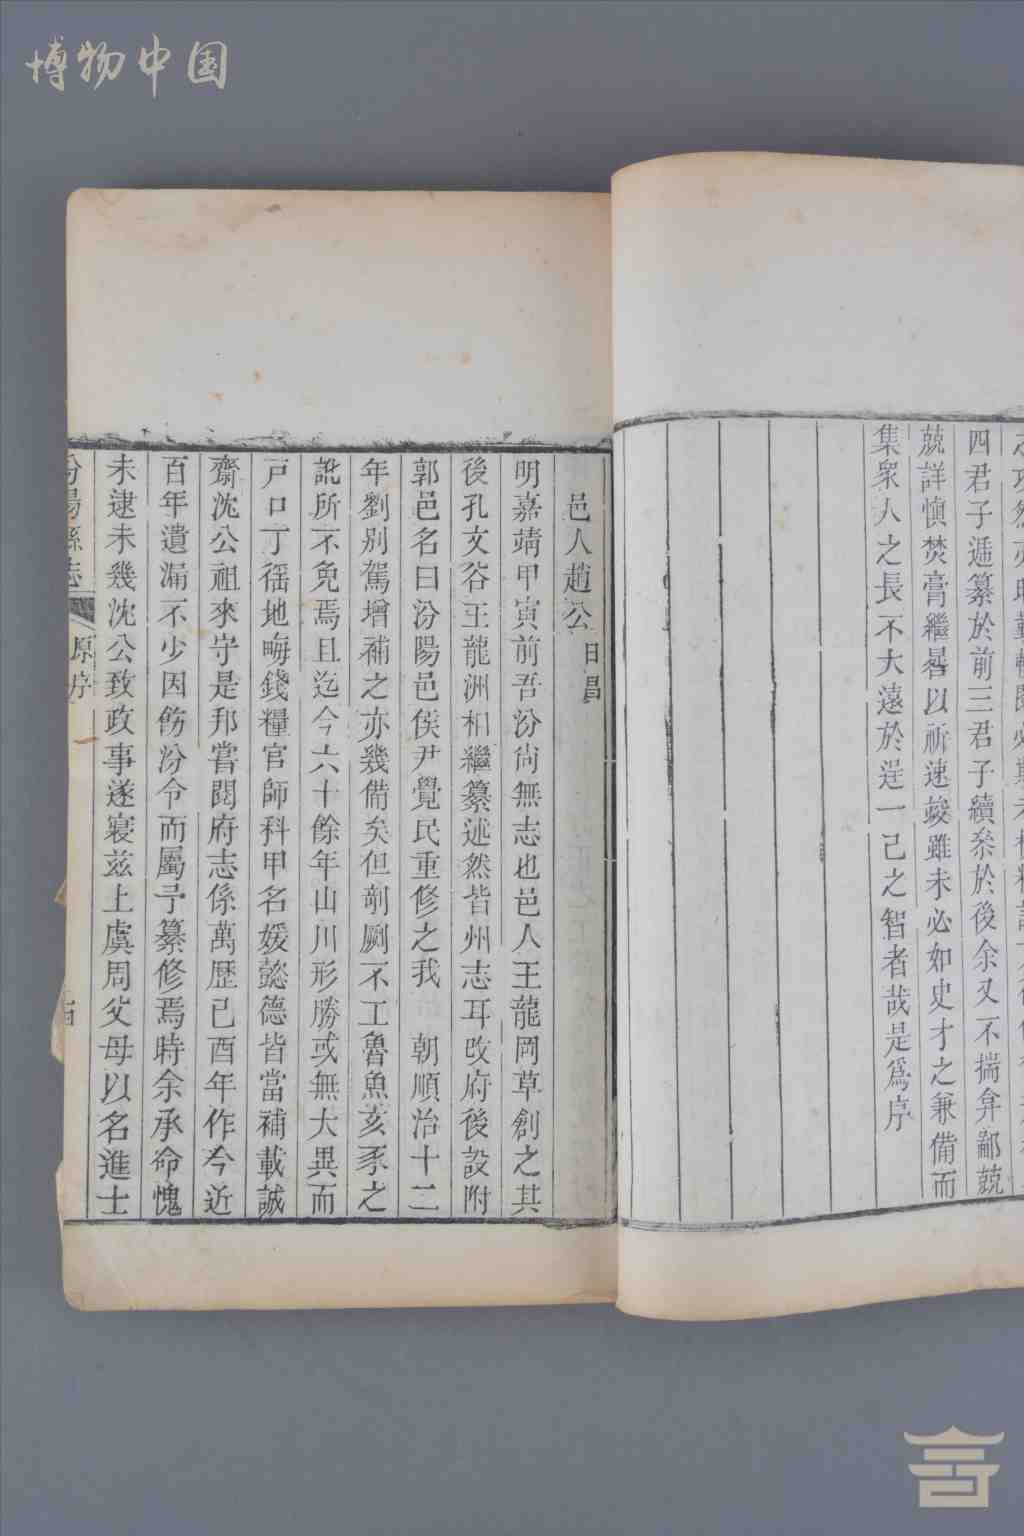 博物中国
四君子遞纂於前三君子續於後余又不揣弇鄙兢
兢詳慎焚膏繼晷以祈速竣雖未必如史才之兼備而
集衆人之長不大遠於逞一己之智者哉是爲序
邑人趙公日昌
明嘉靖甲寅前吾汾尙無志也邑人王龍岡草創之其
後孔文谷王龍洲相繼纂述然皆州志耳改府後設附
郭邑名曰汾陽邑侯尹覺民重修之我 朝順治十二
年劉別駕增補之亦幾備矣但剞劂不工魯魚亥豕之
訛所不免焉且迄今六十餘年山川形勝或無大異而
戸口丁徭地畝錢糧官師科甲名媛懿德皆當補載誠
齋沈公祖來守是邦嘗閱府志係萬歷己酉年作今近
百年遺漏不少因飭汾令而屬予纂修焉時余承命愧
未逮未幾沈公致政事遂寢茲上虞周父母以名進士
汾陽縣志 原序